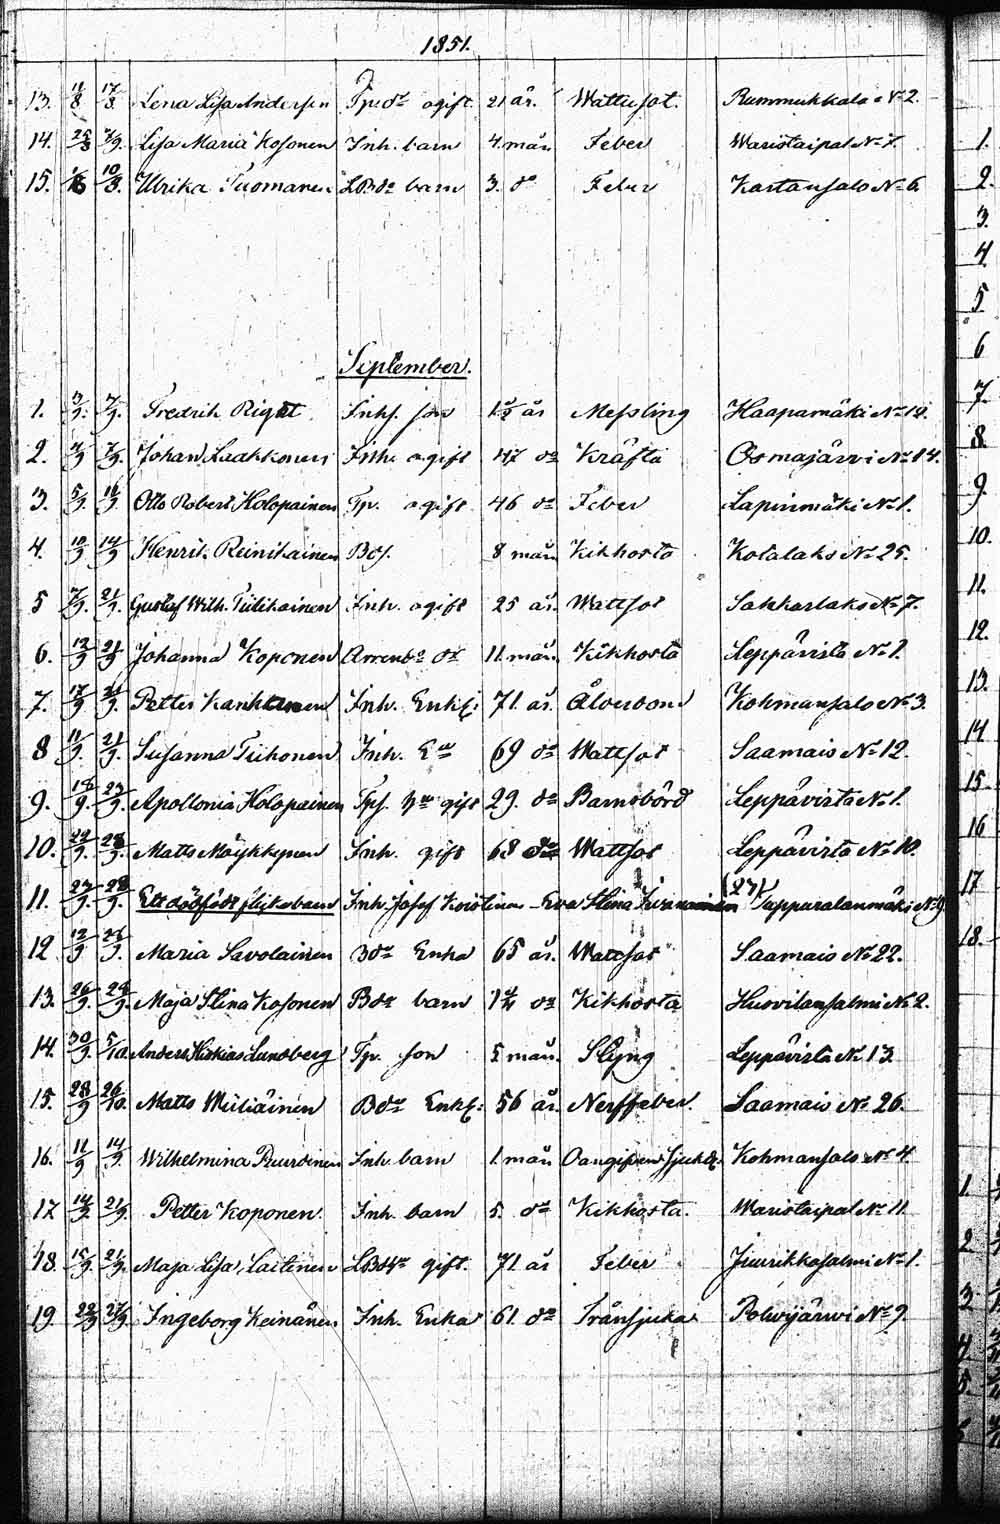 1851.
13. 11/8 17/8 Lena Lisa Andersin Tp. dr ogift 21 år. Wattusot. Rummukkala No 2.
14. 25/8 7/9. Lisa Maria Kosonen Inh. barn 4. mån Feber Waristaipal No 7.
15. 10/8. Ulrika Tuomanen LBdr barn 3. do Feber Kartansalo No 6.
September.
1. 3/9. 7/9. Fredrik Right Inhs. son år Messling Haapamäki No 12.
2. 4/9 7/9. Johan Laakkonen Inh. ogift 47 do Kräfta Osmajärvi No 14.
3. 5/9. 10/9. Otto Robert Holopainen Tp. ogift 46 do Feber Lapinmäki No 1.
4. 10/9 14/9 Henrik Reinikainen Bds. 8 mån Kikhosta Kotalaks No 25.
5 7/9. 21/9. Gustaf Wilh. Tiilikainen Inh. ogift 25 år. Wattsot Sahkarlaks No 7.
6. 12/9 21/9 Johanna Koponen Arrend dr 11. mån Kikhosta Leppävirta No 1.
7. 17/9 21/9. Petter Karhunen Inh. Enkl. 71. år. Ålderdom Kohmansalo No 3.
8 11/9. 21/9. Susanna Tiihonen Inh. Ea 69 do Wattsot Saamais No 12.
9. 18/9. 23/9. Apollonia Holopainen Tps. hu gift 29. do Barnsbörd Leppävirta No 1.
10. 22/9. 28/9. Matts Möykkynen Inh. gift 68 do Wattsot Leppävirta No 10.
11. 27/9. 28/9. Ett dödfödt flickebarn Inh. Josef Koistinen Eva Stina (27) Tappuralanmäki No 9.
12 12/9 28/9. Maria Savolainen Bdr Enka 65 år. Wattsot Saamais No 22.
13. 26/9. 29/9. Maja Stina Kosonen Bdr barn do Kikhosta Husvilansalmi No 2.
14. 30/9. 5/10. Anders Hiskias Lundberg Tp. son 5 mån. Slyng Leppävirta No 13.
15. 28/9 26/10. Matts Miiliäinen Bdr Enkl. 56 år. Nerffeber. Saamais No 26.
16. 11/9 14/9. Wilhelmina Puurunen Inh. barn 1. mån Oangifven sjukd. Kohmansalo No 4
17 14/9. 21/9. Petter Koponen. Inh. barn 5. do Kikhosta. Waristaipal No 11
18. 15/9. 21/9. Maja Lisa Laitinen gift. 71 år Feber Jiurikkasalmi No 1.
19. 22/9 28/9. Ingeborg Keinänen Inh. Enka 61. do Trånsjuka Polvijärvi No 9.
1.
2.
3.
4
5
6
7.
8
9.
10.
11.
12.
13.
14
15.
16
17
18.
1.
2
3
4
5.